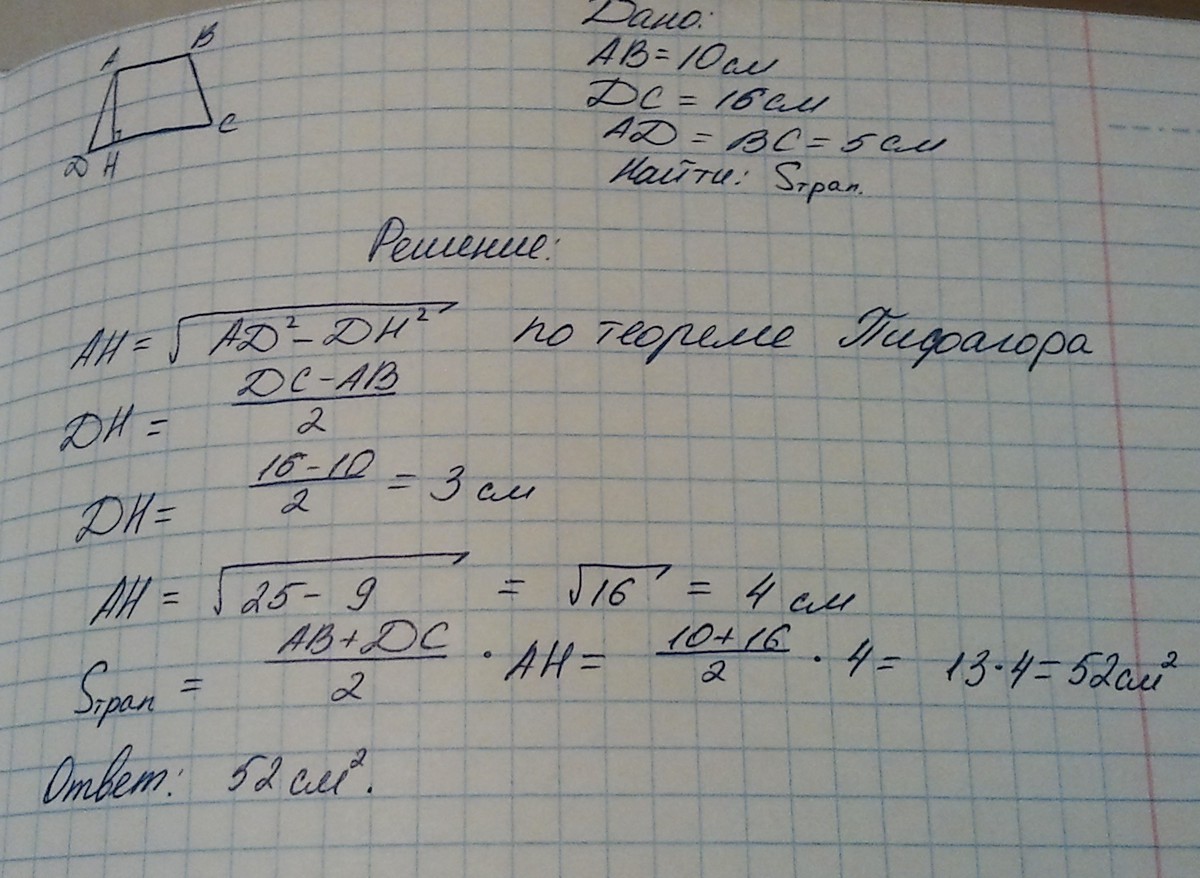 A B
D H C
Дано:
AB = 10 см
DC = 16 см
AD = BC = 5 см
Найти: Sтрап.
Решение:
AH = √(AD² - DH²) по теореме Пифагора
DH = (DC - AB)/2
DH = (16 - 10)/2 = 3 см
AH = √(25 - 9) = √16 = 4 см
Sтрап = (AB + DC)/2 · AH = (10 + 16)/2 · 4 = 13·4 = 52 см²
Ответ: 52 см².